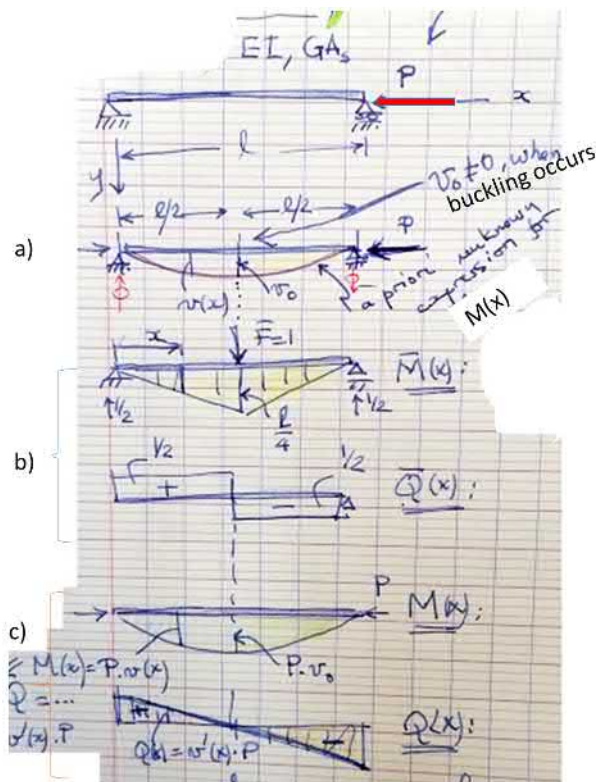 EI, GAs
P
x
l
y
v₀ ≠ 0, when
buckling occurs
l/2 l/2
a)
P
v(x)
v₀
a priori unknown
expression for
M(x)
F̄=1
x
M̄(x):
1/2
l/4
1/2
b)
1/2
1/2
+
−
Q̄(x):
P
M(x):
c)
M(x)=P.v(x)
P.v₀
Q = ...
v'(x).P
+
−
Q(x)=v'(x).P
Q(x):